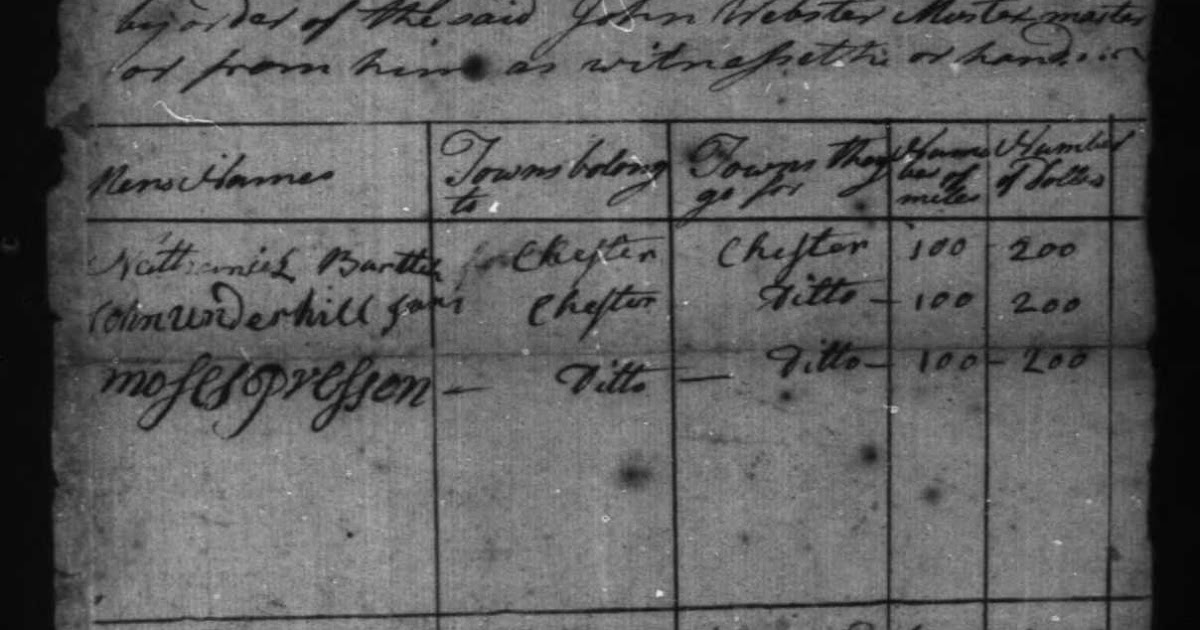 by order of the said John Webster Muster master
or from him as witnesseth or hands
Mens Names Towns belong to Towns they go for Number of miles Number of Dollers
Nathaniel Bartlett Chester Chester 100 200
John Underhill Chester Ditto – 100 200
moses presson – Ditto – Ditto – 100 – 200